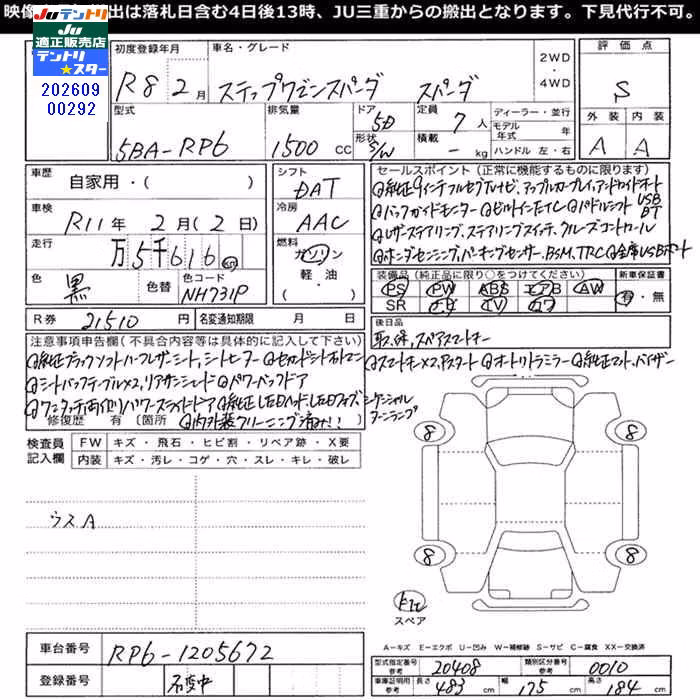 映像 出は落札日含む4日後13時、JU三重からの搬出となります。下見代行不可。
JUテントリ
JU
適正販売店
テントリ
スター
202609
00292
初度登録年月
R8 2月
車名・グレード
ステップワゴンスパーダ スパーダ
2WD
・
4WD
評価点
S
外装 内装
A A
型式
5BA-RP6
排気量
1500 CC
ドア
5D
形状
S/W
定員
7人
積載
- kg
ディーラー・並行
モデル年式 年
ハンドル 左・右
車歴
自家用・( )
車検
R11年 2月(2日)
走行
万5千616 km
色
黒
色替
色コード
NH731P
シフト
DAT
冷房
AAC
燃料
ガソリン
軽油・
( )
セールスポイント (正常に機能するものに限ります)
◎純正9インチフルセグTVナビ、アップルカープレイ、アンドロイドオート
◎バックガイドモニター ◎ビルトインETC ◎パドルシフト USB
BT
◎レザーステアリング、ステアリングスイッチ、クルーズコントロール
◎ホンダセンシング、パーキングセンサー、BSM、TRC ◎全席USBポート
装備品 (純正品に限り○をつけてください)
PS PW ABS エアB AW
SR TV
新車保証書
有・無
R券 21510円
名変通知期限 月 日
後日品
取、保、スペアスマートキー
注意事項申告欄 (不具合内容等は具体的に記入して下さい)
◎純正ブラックソフトハーフレザーシート、シートヒーター ◎セカンドシートオットマン
◎スマートキー×2、Pスタート ◎オートリトラミラー ◎純正マット、バイザー
◎シートバックテーブル×2、リアサンシェード ◎パワーバックドア
◎ワンタッチ両側パワースライドドア ◎純正LEDヘッド、LEDフォグ、シーケンシャル
ターンランプ
修復歴 有 (箇所 ◎内外装クリーニング済み!!
検査員
記入欄
FW キズ・飛石・ヒビ割・リペア跡・X要
内装 キズ・汚レ・コゲ・穴・スレ・キレ・破レ
ウスA
8 8
8 8
スペア
A-キズ E-エクボ U-凹み W-補修跡 S-サビ C-腐食 XX-交換済
車台番号 RP6-1205672
登録番号 名変中
型式指定番号
参考
20408
類別区分番号
参考
0010
車庫証明用
参考
長さ 483 cm 幅 175 cm 高さ 184 cm